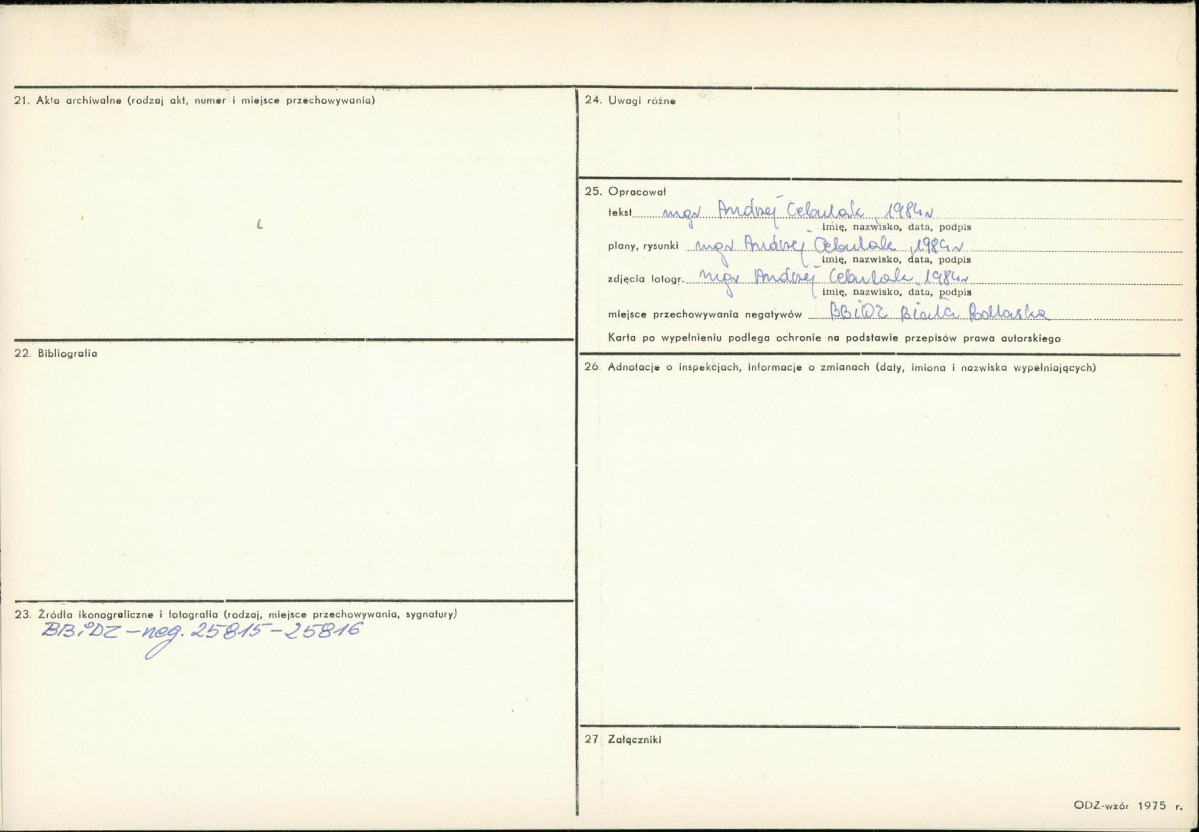 21. Akta archiwalne (rodzaj akt, numer i miejsce przechowywania)
22. Bibliografia
23. Źródła ikonograficzne i fotografia (rodzaj, miejsce przechowywania, sygnatury)
BBiDZ – neg. 25815 – 25816
24. Uwagi różne
25. Opracował
tekst mgr Andrzej Cebulak, 1984 r
imię, nazwisko, data, podpis
plany, rysunki mgr Andrzej Cebulak, 1984 r
imię, nazwisko, data, podpis
zdjęcia fotogr. mgr Andrzej Cebulak, 1984 r
imię, nazwisko, data, podpis
miejsce przechowywania negatywów BBiDZ Biała Podlaska
Karta po wypełnieniu podlega ochronie na podstawie przepisów prawa autorskiego
26. Adnotacje o inspekcjach, informacje o zmianach (daty, imiona i nazwiska wypełniających)
27. Załączniki
ODZ-wzór 1975 r.